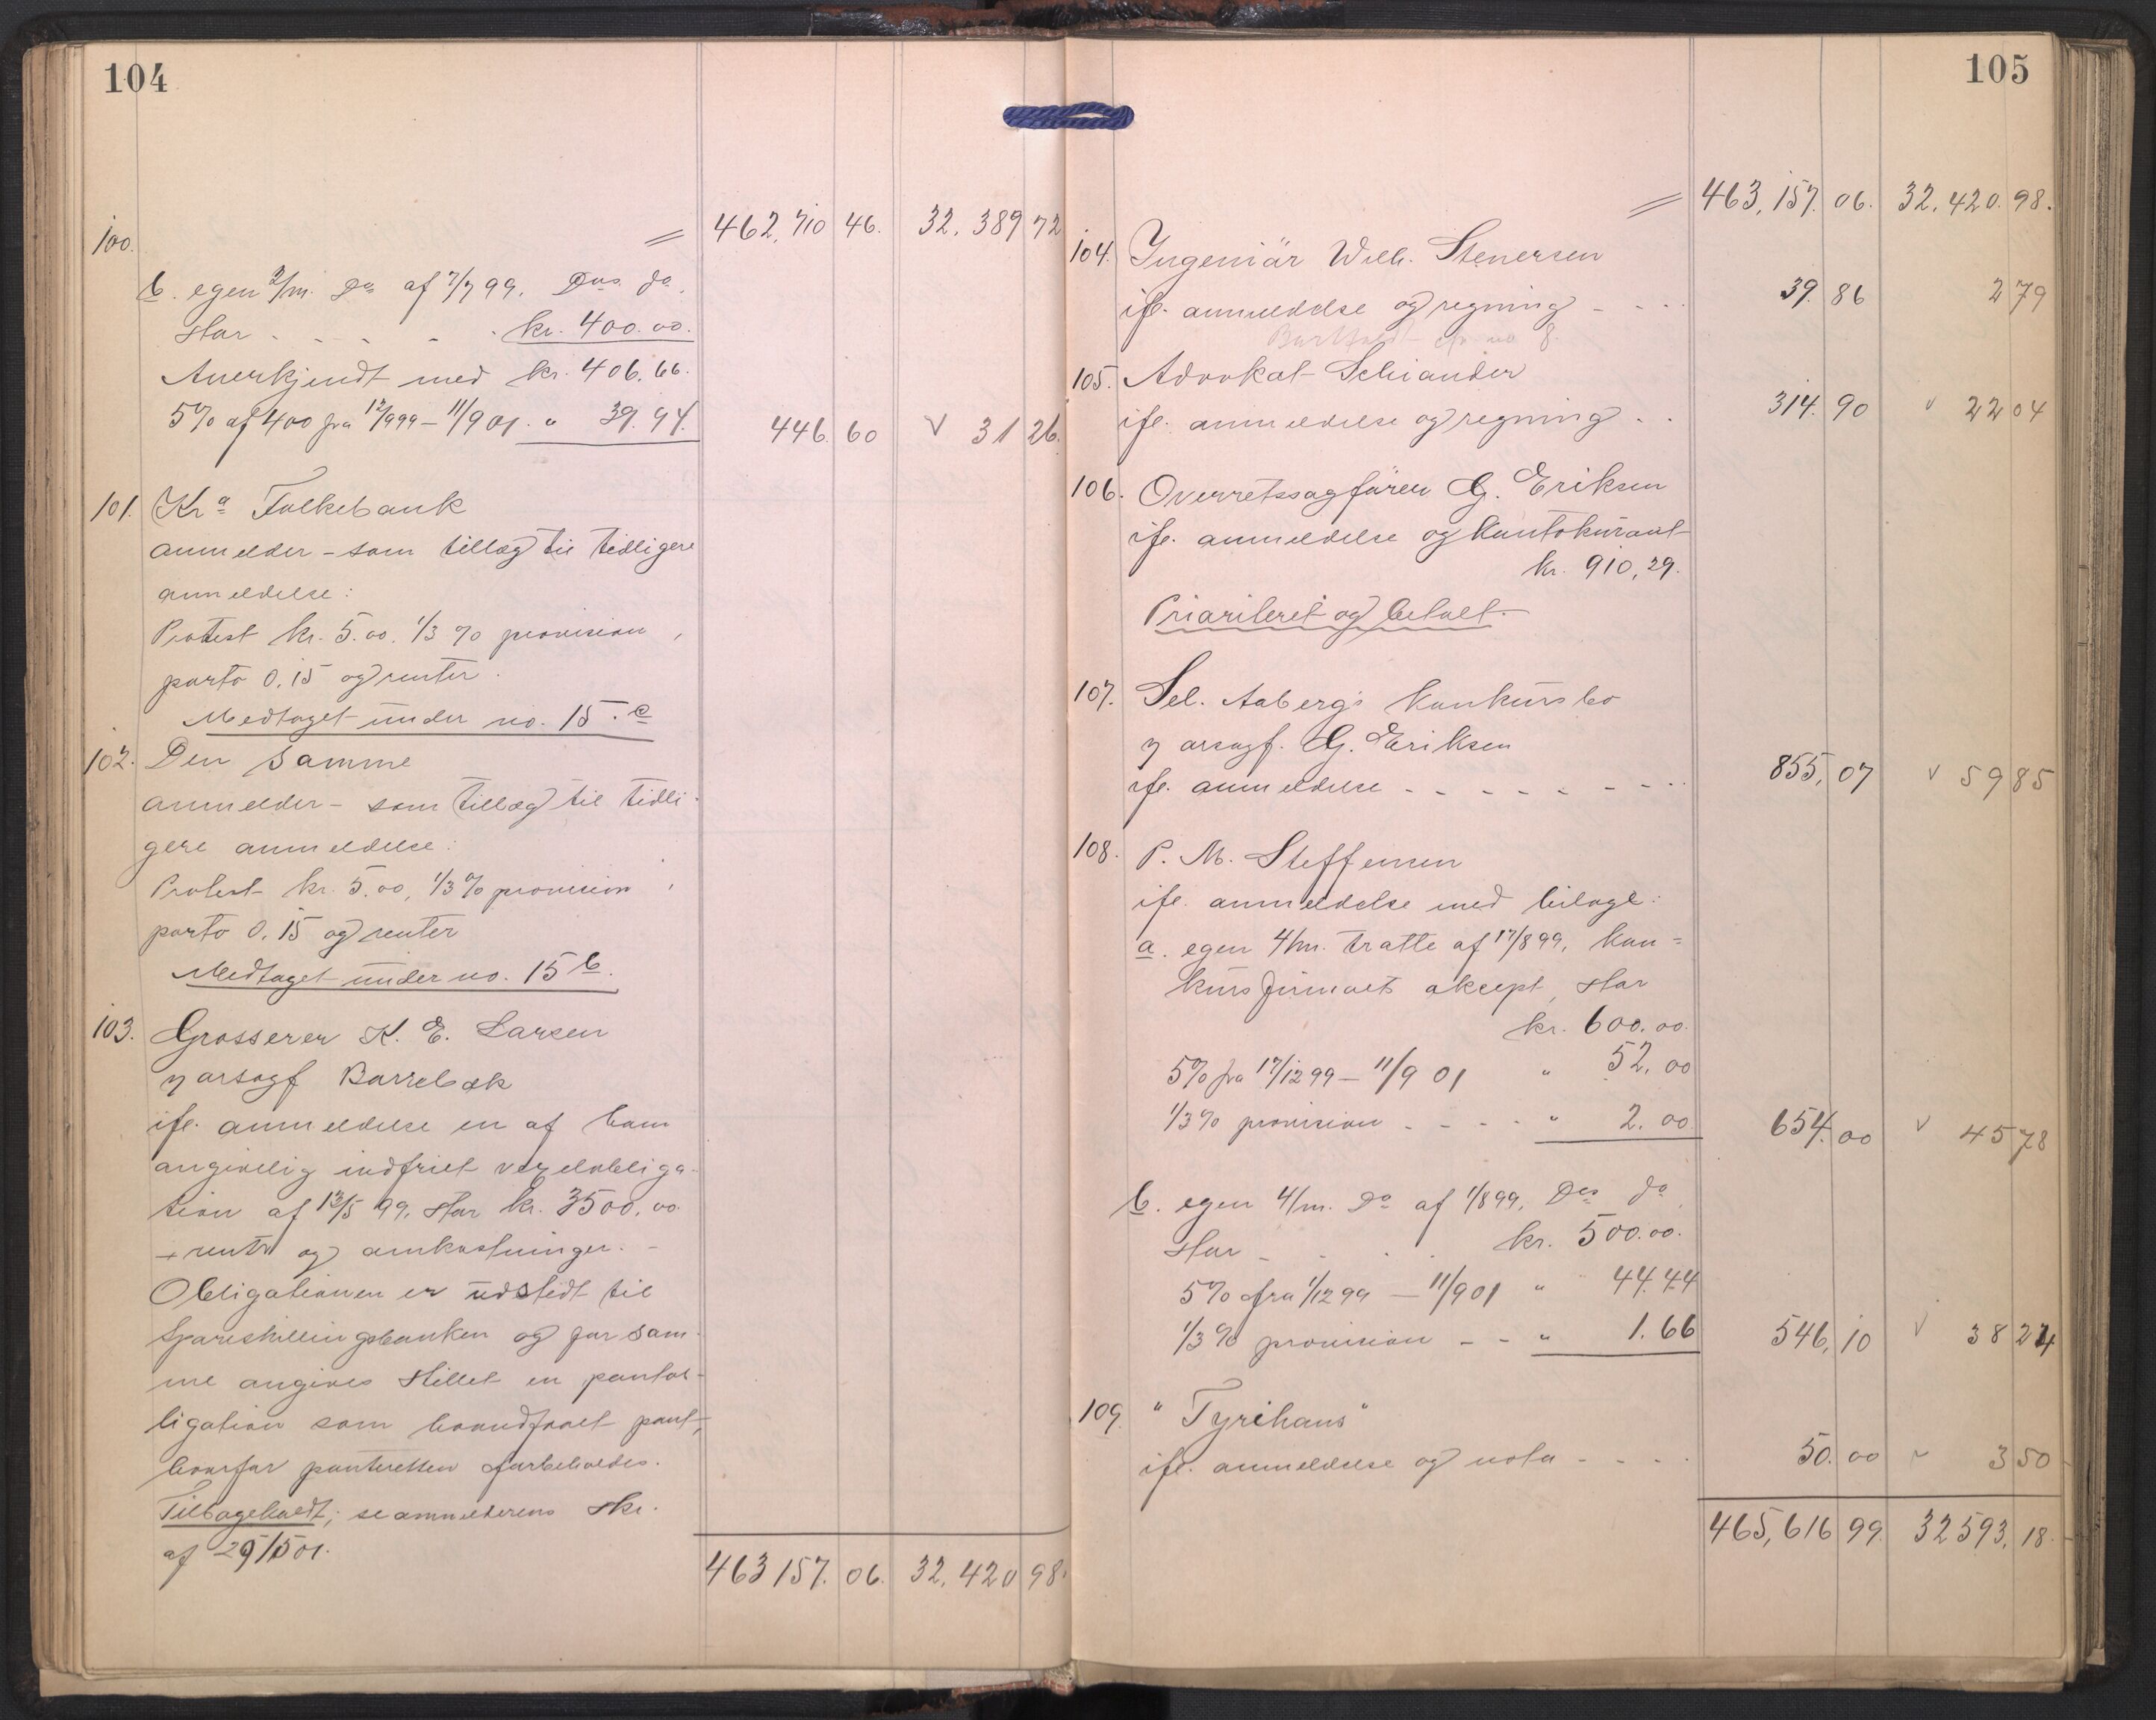 104
= 462,710 46. 32,389 72
100.
b. egen 2/m. Do af 7/7 99, Dos do,
stor . - - - . kr. 400.00.
Anerkjendt med kr. 406.66.
5% af 400 fra 12/9 99 – 11/9 01. " 39.94. 446.60 V 31 26.
101. Kra Folkebank
anmelder – som tillæg til tidligere
anmeldelse:
Protest kr. 5.00. 1/3 % provision,
porto 0.15 og renter.
Medtaget under no. 15.c
102. Den samme
anmelder – som tillæg til tidli-
gere anmeldelse:
Protest kr. 5.00, 1/3 % provision,
porto 0.15 og renter
Medtaget under no. 15 b.
103. Grosserer K. E. Larsen
v/ orsagf Barrebæk
ifl. anmeldelse en af ham
angivelig indfriet vexelobliga-
tion af 13/5 99, stor kr. 3500.00
+ renter og omkostninger. –
Obligationen er udstedt til
Spareskillingsbanken og for sam-
me angives stillet en pantob-
ligation som haandfaaet pant,
hvorfor panteretten forbeholdes.
Tilbageholdt; se anmelderens skr.
af 29/5 01.
463 157. 06. 32,420 98.
105
= 463,157. 06. 32,420. 98.
104. Ingeniär Wilh. Stenersen
ifl. anmeldelse og regning - - - 39. 86 2 79
105. Advokat Schiander
ifl. anmeldelse og regning . . 314. 90 v 22 04
106. Overretssagfürer G. Eriksen
ifl. anmeldelse og kontokurant
kr. 910,29.
Prioriteret og betalt.
107. Sel. Aabergs konkursbo
v/ orsagf. G. Eriksen
ifl. anmeldelse - - - - - - - 855,07 v 59 85
108. P. M. Steffensen
ifl. anmeldelse med bilage:
a. egen 4/m. tratte af 17/8 99, kon=
kursfirmaets aksept, stor
kr. 600.00.
5% fra 17/12 99 – 11/9 01 " 52.00
1/3 % provision - - - - " 2.00 654.00 v 45 78
b. egen 4/m. Do af 1/8 99, Dos do,
stor - - . . kr. 500.00.
5% fra 1/12 99 – 11/9 01 " 44.44
1/3 % provision - - " 1.66 546,10 v 38 24
109. "Tyrihans"
ifl. anmeldelse og nota - - - - 50.00 v 3 50
465,616 99. 32593,18.